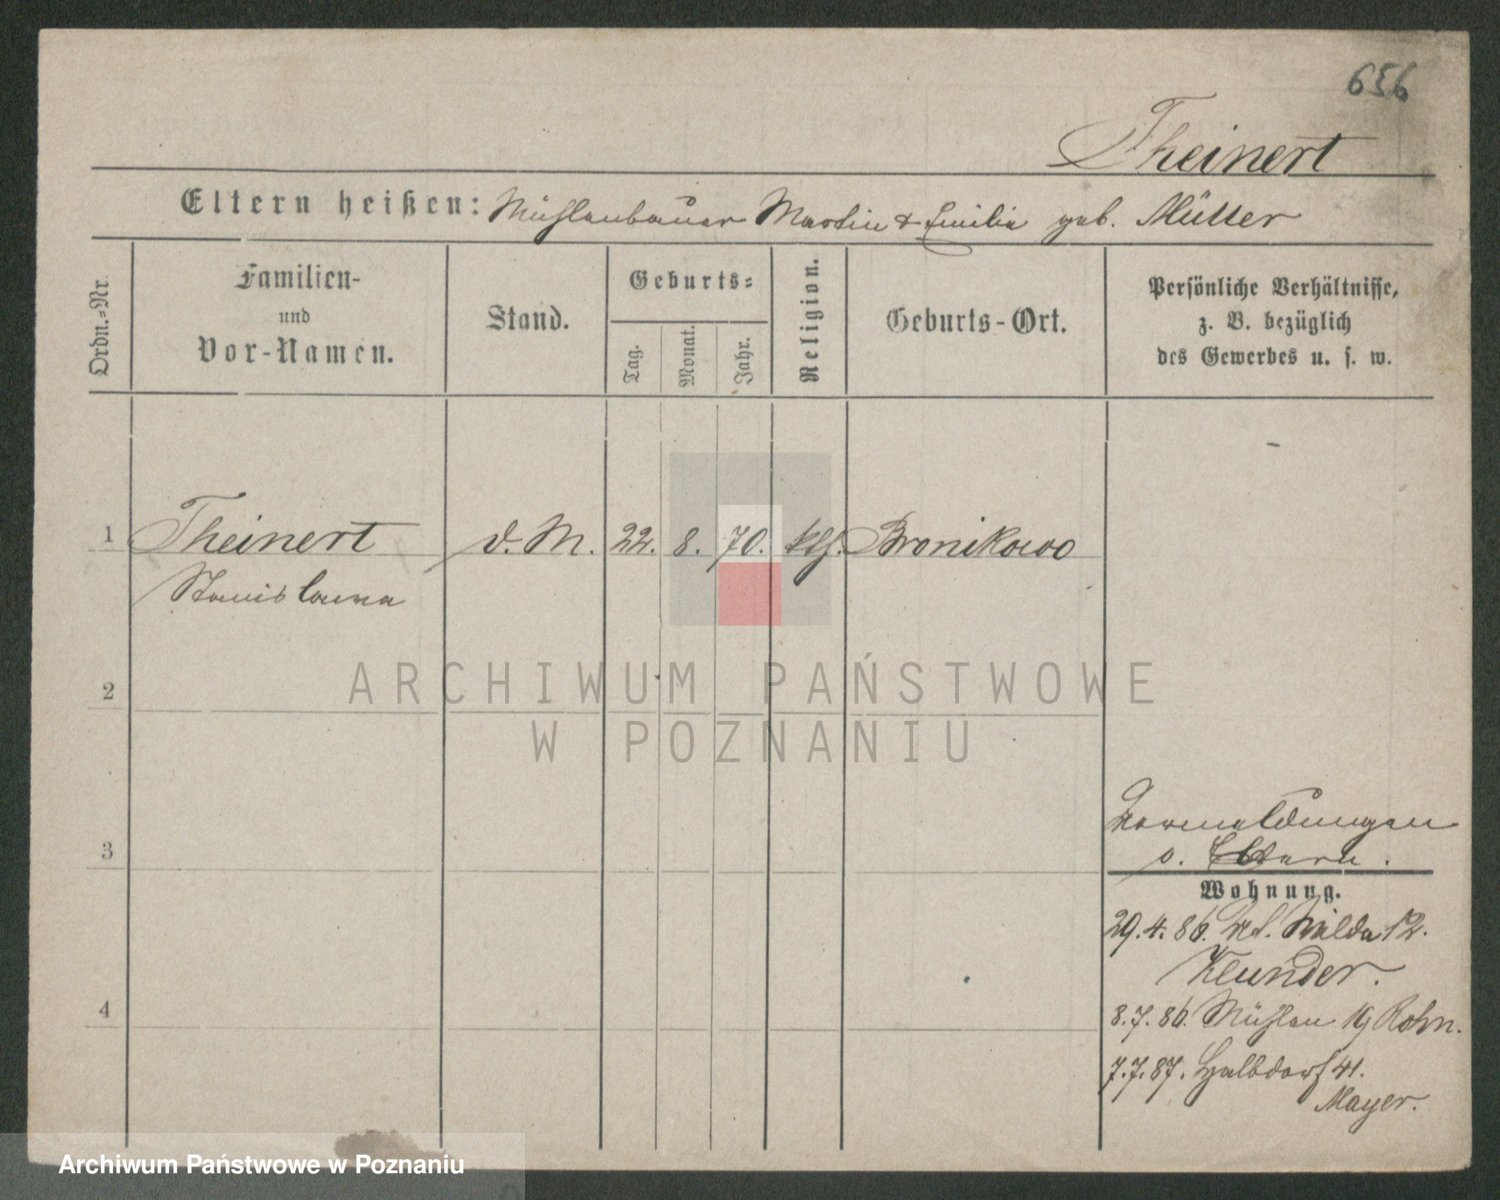 656
Theinert
Eltern heißen: Mühlenbauer Martin & Emilie geb. Mütter
Ordn.-Nr.
Familien-
und
Vor-Namen.
Stand.
Geburts-
Tag.
Monat.
Jahr.
Religion.
Geburts-Ort.
Persönliche Verhältnisse,
z. B. bezüglich
des Gewerbes u. s. w.
1 Theinert d. M. 22. 8. 70. kth. Bronikowo
Stanislawa
2
ARCHIWUM PAŃSTWOWE
W POZNANIU
3
Vormeldungen
v. Eltern.
Wohnung.
29.4.86. Wilda 12.
Klunder.
4
8.7.86. Mühlen 19 Rohn.
7.7.87. Halbdorf 41.
Mayer.
Archiwum Państwowe w Poznaniu